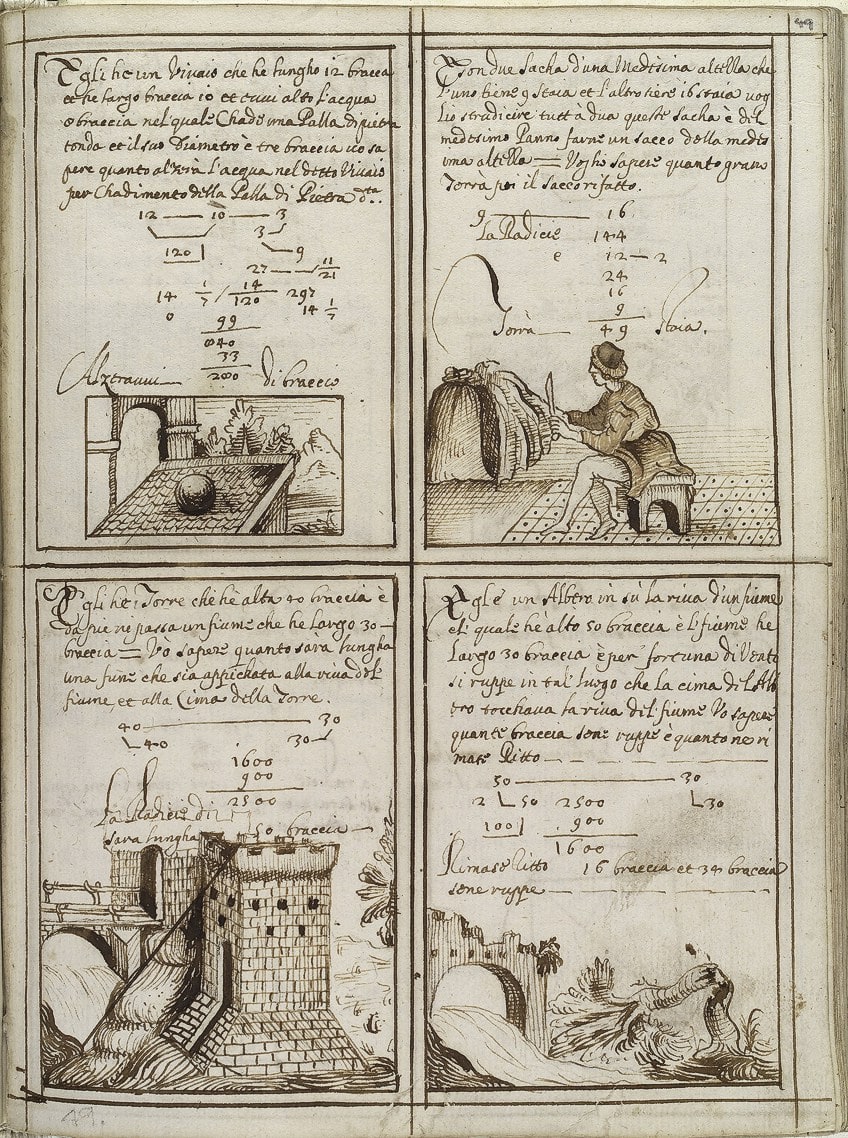 49
Egli he un Vivaio che he lungho 12 bracca
et he largo braccia 10 et evvi alto l'acqua
8 braccia nel quale Chade una Palla di pietra
tonda et il suo Diametro è tre braccia vo sa
pere quanto alzerà l'acqua nel detto Vivaio
per Chadimento della Palla di Pietra d.ta..
12 — 10 — 3
3
120 9
27 — 11/21
14 1/7 / 14/120 297
0 14 1/7
99
840
33
280
Alzeravvi — di braccio
E son due Sacha d'una Medesima altella che
l'uno tiene 9 Staia et l'altro tiene 16 staia vog
lio sdrucire tutt'à dua queste sacha è del
medesimo Panno farne un sacco della medes
ima altella = Voglio sapere quanto grano
Terrà poi il sacco rifatto.
9 — 16
La Radicie 144
è 12 — 2
24
16
9
Terrà — 49 Staia.
Egli he 1 Torre che hè alta 40 braccia è
da pie vi passa un fiume che he Largo 30 —
braccia = Vo sapere quanto sarà lungha
una fune che sia appichata alla riva del
fiume, et alla Cima della Torre.
40 — 30
40 30
1600
900
2500
La Radicie di
sara lungha 50 braccia —
Egl'è un Albero in sù la riva d'un fiume
el quale hè alto 50 braccia è l'fiume he
Largo 30 braccia è per fortuna di Vento
si ruppe in tal luogo che la cima del Alb
ero tocchava la riva del fiume Vo sapere
quante braccia sene ruppe è quanto ne ri
mase Ritto —
50 — 30
2 50 2500 30
100 900
1600
Rimase Ritto 16 braccia et 34 braccia
sene ruppe —
49.